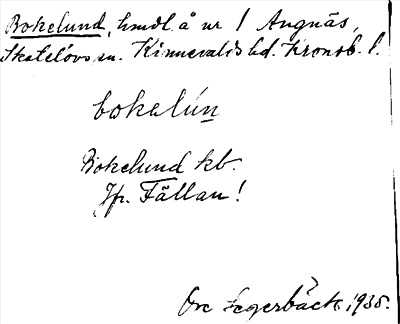 Bokelund, hmdl. å nr 1 Angnäs,
Skatelövs sn. Kinnevalds hd. Kronob. l.
bokelún
Bokelund kb.
Jfr. Fällan!
Ove Segerbäck 1935.